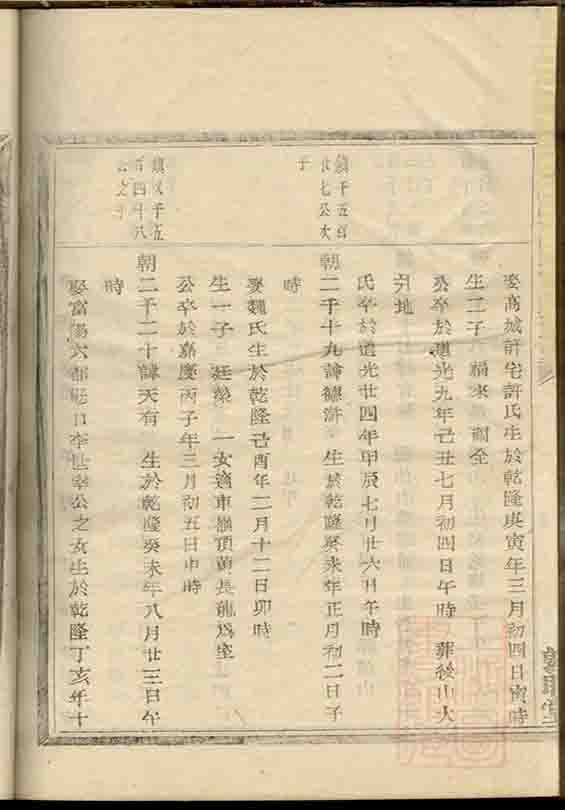 娶高城許宅許氏生於乾隆庚寅年三月初四日寅時
生二子 福來 福全
公卒於道光九年己丑七月初四日午時 葬後山大
地
氏卒於道光廿四年甲辰七月廿六日午時
鎮千五百
廿七公次
子
朝二千十九諱德滸 生於乾隆癸未年正月初二日子
時
娶魏氏生於乾隆己酉年二月十二日卯時
生一子 廷榮 一女適東嶺頂黃長龍為室
公卒於嘉慶丙子年三月初五日申時
鎮千五
百四十八
公之子
朝二千二十諱天有 生於乾隆癸未年八月廿三日午
時
娶富陽六都 口李世 公之女生於乾隆丁亥年十